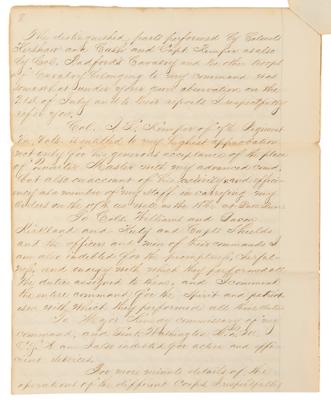 8
The distinguished parts performed by Colonels
Kershaw and Cash and Capt. Kemper as also
by Col. Radford's Cavalry and the other troops
of Cavalry belonging to my command was
somewhat under your own observation on the
21st of July and to their reports I respectfully
refer you.
Col. J. L. Kemper of 7th Regiment
Va. Vols. is entitled to my highest approbation
not only for his generous acceptance of the place
of Quarter Master with my advanced
but also on account of his activity and
as a member of my Staff in carrying my
orders on the 17th as well as the 18th
To Cols. Williams and
Kirkland and and Capts Shields
and the officers and men of their commands I
am also indebted for the promptness,
and energy with which they performed all
the duties assigned to them, and I commend
the entire command for the spirit and
with which they performed all their duties
To Major commissary of my
command, and Lieut. Washington
I am also indebted for active and
services.
For more minute details of the
operations of the different Corps I respectfully